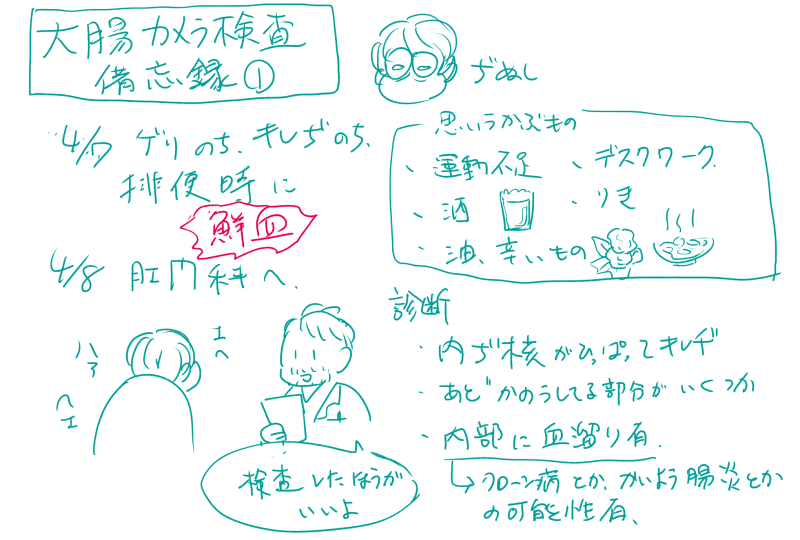 大腸カメラ検査
備忘録①
ぢぬし
4/7 ゲリのち、キレぢのち、
排便時に
鮮血
4/8 肛門科へ.
思いうかぶもの
、運動不足
、デスクワーク.
・酒
・りき
・油、辛いもの
診断
・内ぢ核がひっぱってキレヂ
・あと゛かのうしてる部分がいくつか
・内部に血溜り有.
↳クローン病とか、かいよう腸炎とか
の可能性有、
エヘ
ハア
ヘエ
検査したほうが
いいよ